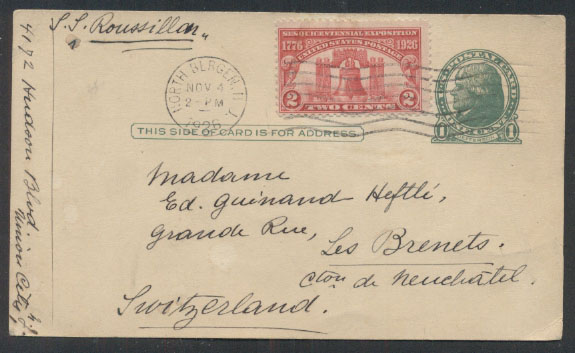 S.S. Roussillon
SESQUICENTENNIAL EXPOSITION
1776 1926
UNITED STATES POSTAGE
2 TWO CENTS 2
NORTH BERGEN, N.J.
NOV 4
2-PM
1926
POSTAL CARD
1 1
THIS SIDE OF CARD IS FOR ADDRESS
Madame
Ed. Guinand Heftlé,
Grande Rue,
Les Brenets.
Cton de Neuchâtel.
Switzerland.
Hudson Blvd.
Union City,
N.J.